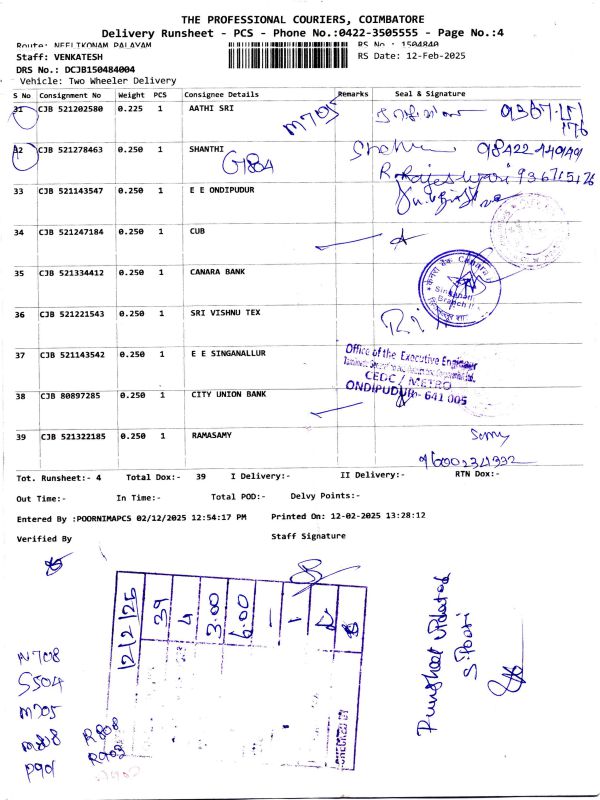 THE PROFESSIONAL COURIERS, COIMBATORE
Delivery Runsheet - PCS - Phone No.:0422-3505555 - Page No.:4
Route: NEELIKONAM PALAYAM RS No : 1504840
Staff: VENKATESH RS Date: 12-Feb-2025
DRS No.: DCJB150484004
Vehicle: Two Wheeler Delivery
S No Consignment No Weight PCS Consignee Details Remarks Seal & Signature
31 CJB 521202580 0.225 1 AATHI SRI
M705
32 CJB 521278463 0.250 1 SHANTHI
G804
33 CJB 521143547 0.250 1 E E ONDIPUDUR
34 CJB 521247184 0.250 1 CUB
35 CJB 521334412 0.250 1 CANARA BANK
36 CJB 521221543 0.250 1 SRI VISHNU TEX
37 CJB 521143542 0.250 1 E E SINGANALLUR
Office of the Executive Engineer
CEDC / METRO
ONDIPUDUR- 641 005
38 CJB 80897285 0.250 1 CITY UNION BANK
39 CJB 521322185 0.250 1 RAMASAMY
9600234332
Tot. Runsheet:- 4 Total Dox:- 39 I Delivery:- II Delivery:- RTN Dox:-
Out Time:- In Time:- Total POD:- Delvy Points:-
Entered By :POORNIMAPCS 02/12/2025 12:54:17 PM Printed On: 12-02-2025 13:28:12
Verified By Staff Signature
12/2/25
39
4
3.00
6.00
N708
S504
M705
M808
P901
R808
R902
Runsheet updated
S.Poori